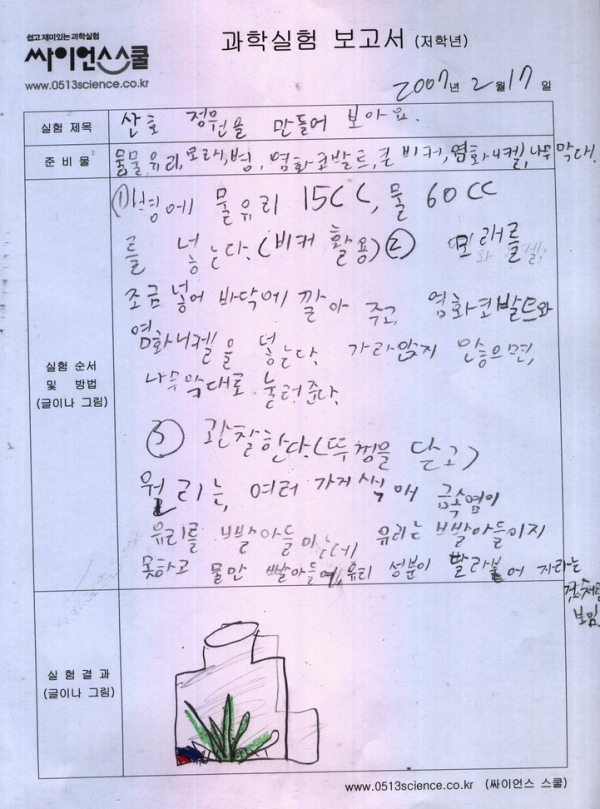 쉽고 재미있는 과학실험
싸이언스스쿨
www.0513science.co.kr
과학실험 보고서 (저학년)
2007년 2월 17일
실험 제목
산호 정원을 만들어 보아요.
준 비 물
물,물유리,모래,병, 염화코발트,큰 비커,염화니켈,나무막대.
실험 순서
및 방법
(글이나 그림)
①병에 물유리 15CC, 물 60CC
를 넣는다.(비커 활용)② 모래를
조금 넣어 바닥에 깔아 주고, 염화코발트와
염화니켈을 넣는다. 가라앉지 않으면,
나무막대로 눌러준다.
③ 관찰한다.(뚜껑을 닫고)
원리는, 여러 가지 색 금속염이
유리를 빨아들이는데 유리는 빨아들이지
못하고 물만 빨아들여, 유리 성분이 달라붙어 자라는
것처럼
보임.
실 험 결 과
(글이나 그림)
www.0513science.co.kr (싸이언스 스쿨)